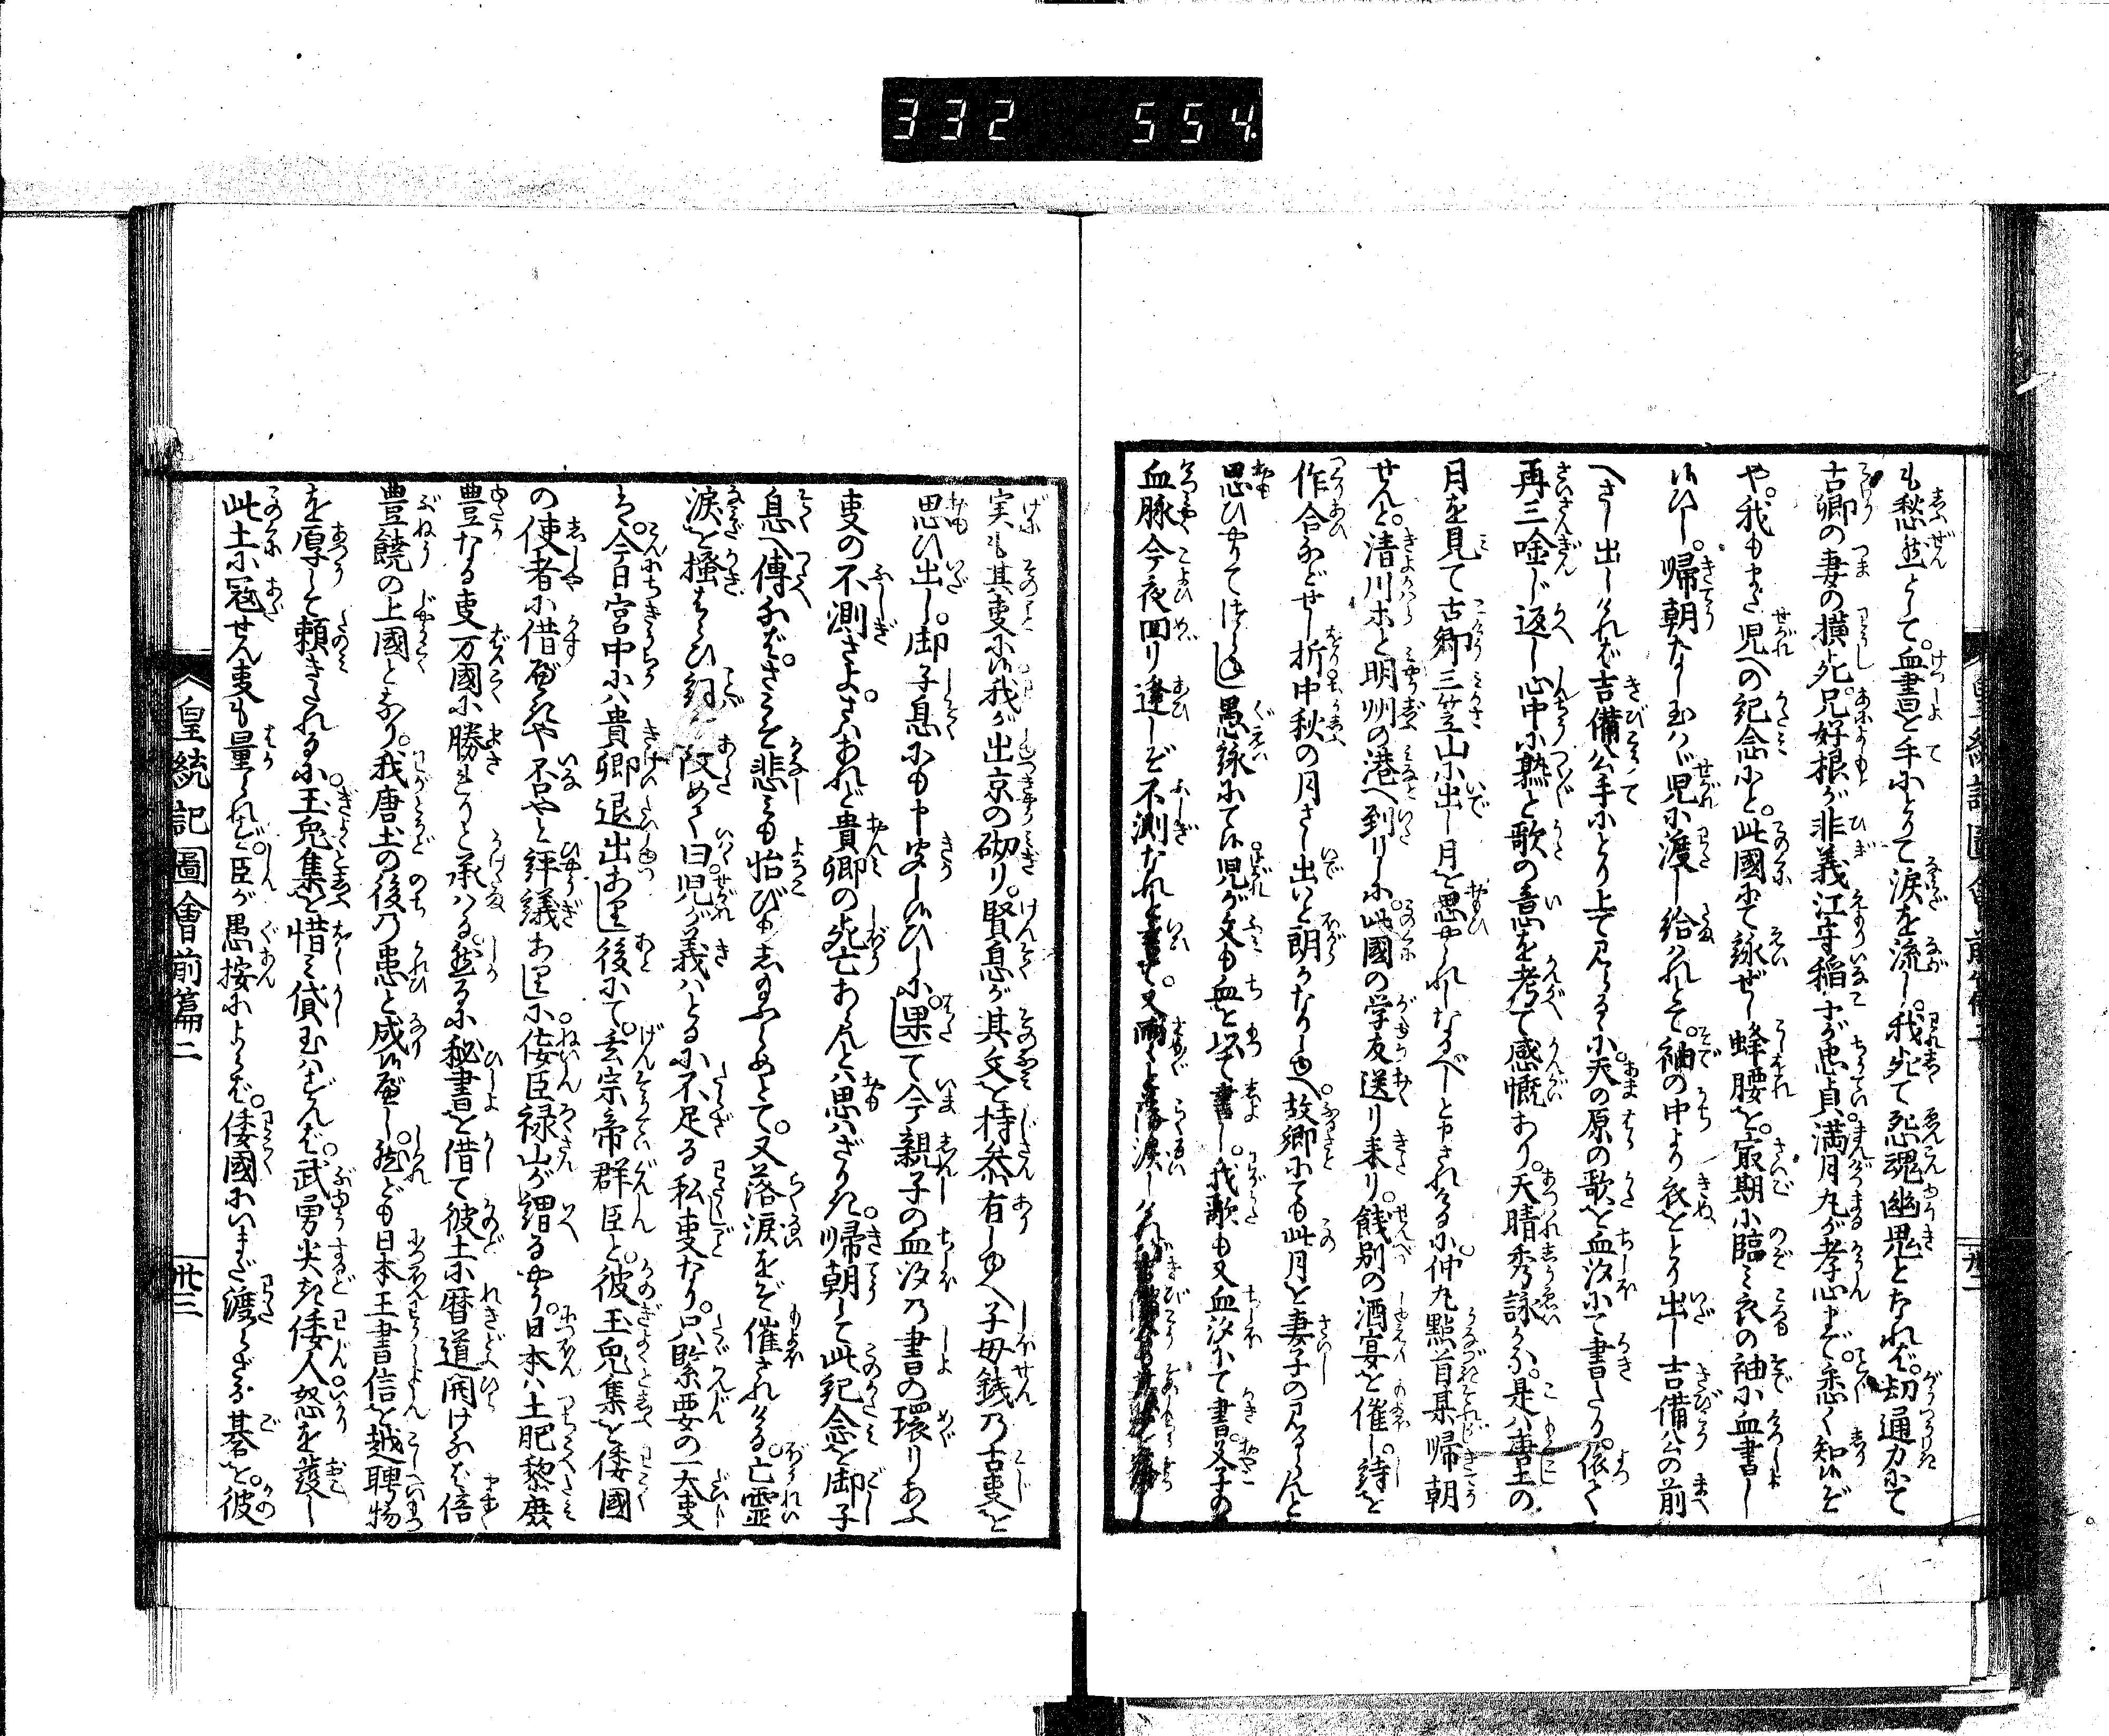 332 554.
も愁然として。血書を手にとりて涙を流し。我死て怨魂幽鬼となれば。刧通力にて
古郷の妻の横死。兄好根が非義江守稲才が忠貞満月丸が孝心まで。悉く知候ぞ
や。我もまた児への紀念にと。此國にて詠ぜし蜂腰を。最期に臨み衣の袖に血書し
候ひし。帰朝なし玉はゞ児に渡し給はれとて。袖の中より衣をとり出し吉備公の前
へさし出しければ吉備公手にとり上て見るに天の原の歌を血汐にて書たり。依て
再三唫じ返し心中に熟と歌の意を考て感慨あり。天晴秀詠かな。是は唐土の
月を見て古郷三笠山に出し月を思やられしなるべしと申されけるに。仲丸點首某帰朝
せんと。清川ホと明州の港へ到りしに。此國の学友送り来り。餞別の酒宴を催し。詩を
作合などせし折中秋の月さし出いと朗かなりしゆへ。故郷にても此月を妻子の見るらんと
思ひやりて仕りし愚詠にて候児が文も血を以て書し。我歌も又血汐にて書。父子の
血脉今夜回り逢しぞ不測なれと
皇統記圖會前篇二
実も其事に候我が出京の砌り。賢息が其文を持参有しゆへ子母銭の古事を
思ひ出し。御子息にも申聞し候ひしに果して今親子の血汐の書の環りあふ
事の不測さよ。さはあれど貴卿の死亡あらんとは思はざりき。帰朝して此紀念を御子
息へ傳なば。さこそ悲みも怡びもし給ふらめとて。又落涙をぞ催されける。亡霊
涙を掻はらひ詞を改めて曰児が義はとるに不足る私事なり。只緊要の一大事
は。今日宮中には貴卿退出あり後にて。玄宗帝群臣と。彼玉兎集を倭國
の使者に借べきや否やと評議ありしに佞臣禄山が謂るやう。日本は土肥黎庶
豊なる事万國に勝れりと承はる。然るに秘書を借て彼土に暦道開けなば倍
豊饒の上國となり。我唐土の後の患と成候べし。然ども日本王書信を越聘物
を厚して頼きたれるに。玉兎集を惜み貸玉はずんば。武勇尖き倭人怒を發し
此土に冦せん事も量られず。臣が愚按によらば。倭國にいまだ渡らざる碁を。彼
皇統記圖會前篇二
卅三